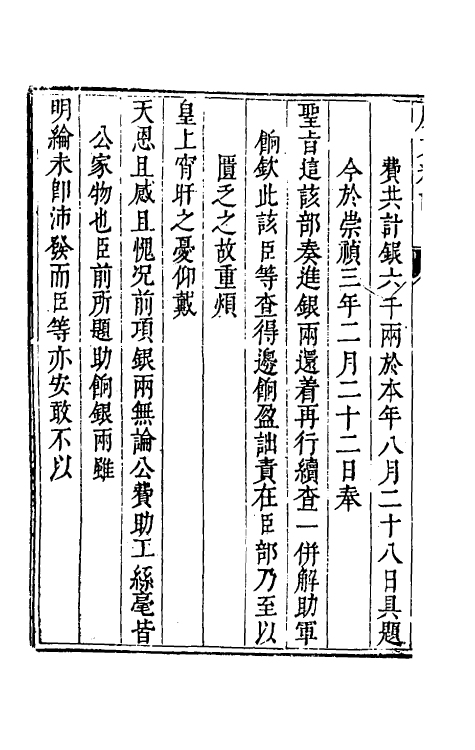 費共計銀六千兩於本年八月二十八日具題
今於崇禎三年二月二十二日奉
聖旨這該部奏進銀兩還着再行續查一併解助軍
餉欽此該臣等查得邊餉盈詘責在臣部乃至以
匱乏之故重煩
皇上宵旰之憂仰戴
天恩且感且愧况前項銀兩無論公費助工絲毫皆
公家物也臣前所題助餉銀兩雖
明綸未卽沛發而臣等亦安敢不以